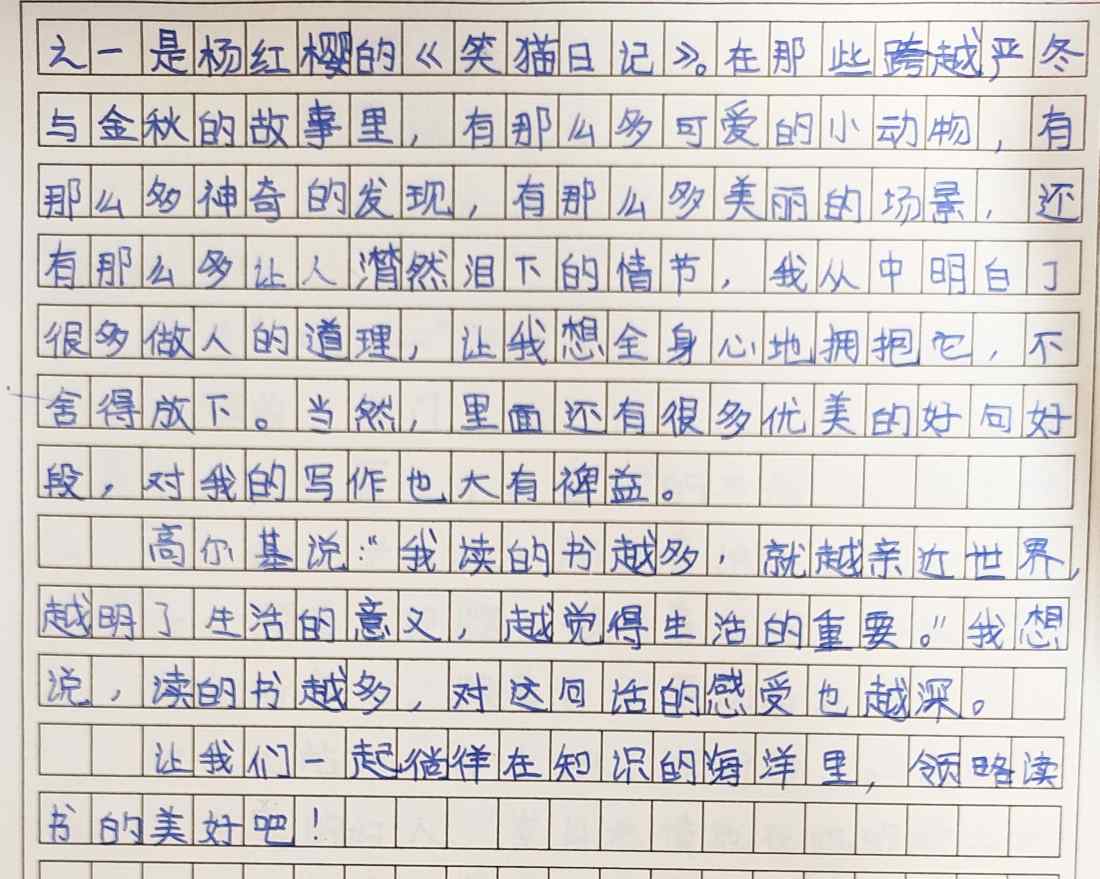 之一是杨红樱的《笑猫日记》。在那些跨越严冬
与金秋的故事里，有那么多可爱的小动物，有
那么多神奇的发现，有那么多美丽的场景，还
有那么多让人潸然泪下的情节，我从中明白了
很多做人的道理，让我想全身心地拥抱它，不
舍得放下。当然，里面还有很多优美的好句好
段，对我的写作也大有裨益。
高尔基说："我读的书越多，就越亲近世界，
越明了生活的意义，越觉得生活的重要。"我想
说，读的书越多，对这句话的感受也越深。
让我们一起徜徉在知识的海洋里，领略读
书的美好吧！